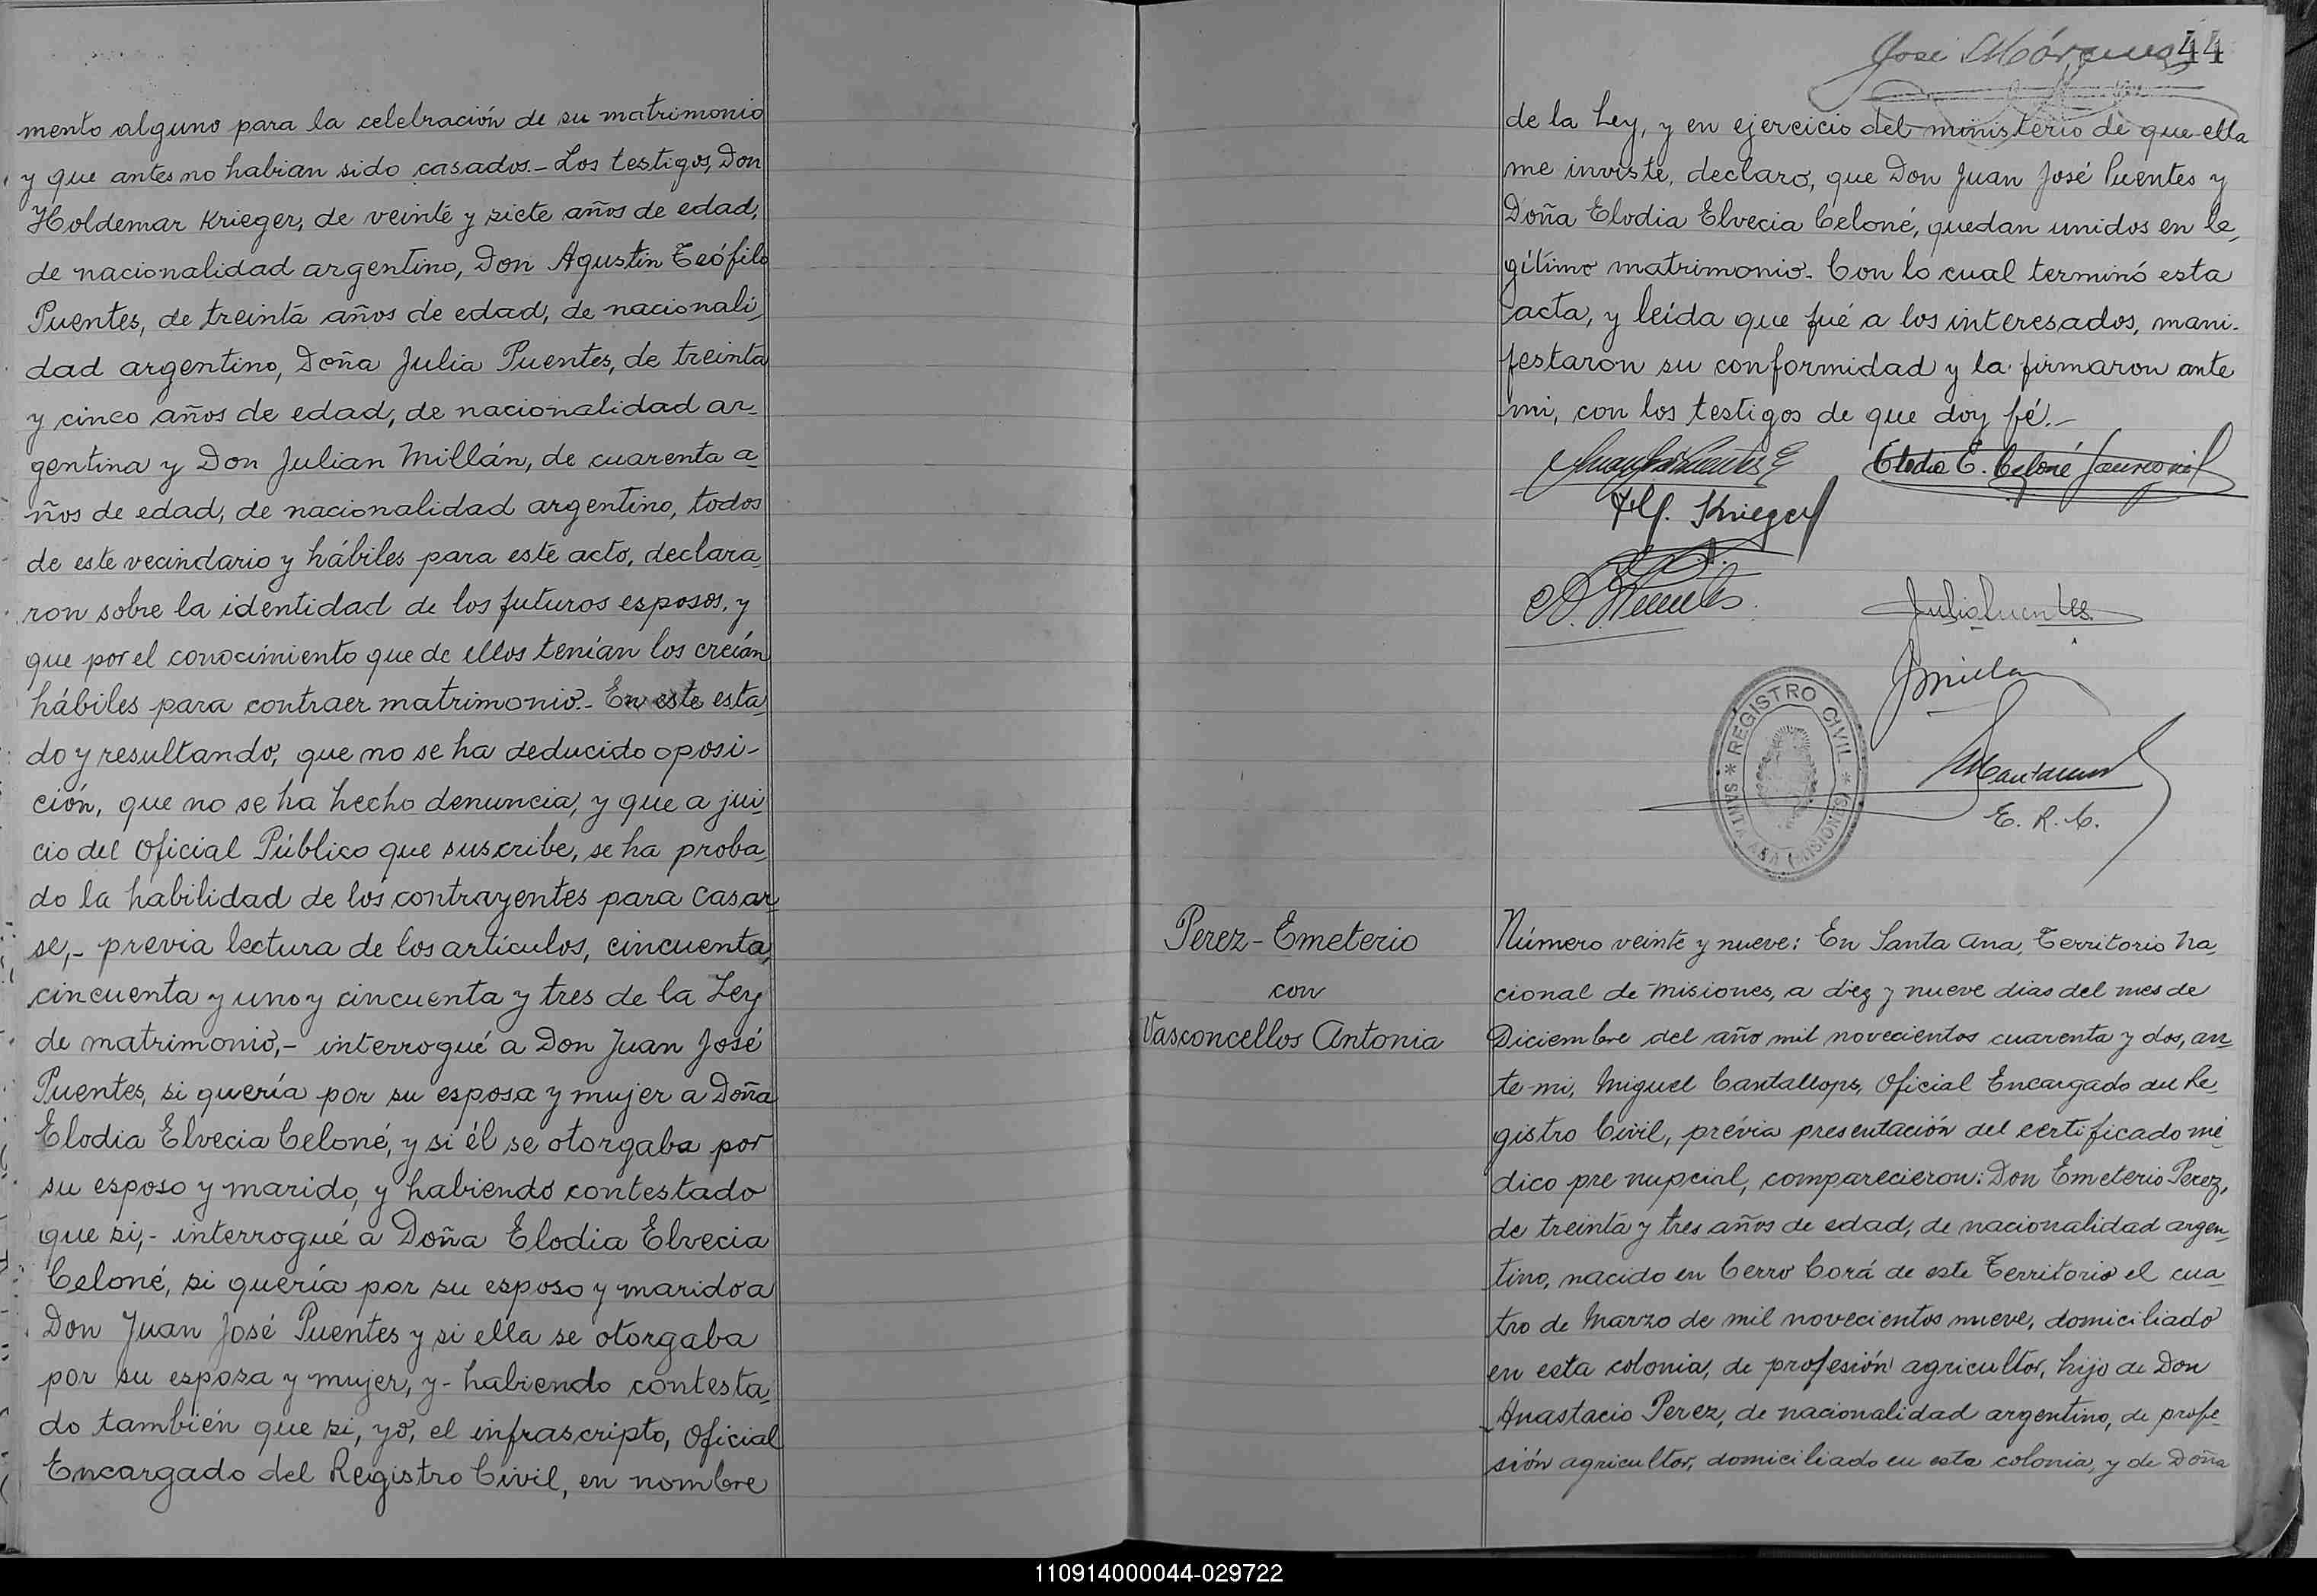 mento alguno para la celebración de su matrimonio
y que antes no habian sido casados.- Los testigos, Don
Holdemar Krieger, de veinte y siete años de edad,
de nacionalidad argentino, Don Agustin Teófilo
Puentes, de treinta años de edad, de nacionali-
dad argentino, Doña Julia Puentes, de treinta
y cinco años de edad, de nacionalidad ar-
gentina y Don Julian Millán, de cuarenta a-
ños de edad, de nacionalidad argentino, todos
de este vecindario y hábiles para este acto, declara-
ron sobre la identidad de los futuros esposos, y
que por el conocimiento que de ellos tenían los creían
hábiles para contraer matrimonio.- En este esta-
do y resultando, que no se ha deducido oposi-
ción, que no se ha hecho denuncia, y que a jui-
cio del Oficial Público que suscribe, se ha proba-
do la habilidad de los contrayentes para casar-
se,- previa lectura de los artículos, cincuenta,
cincuenta y uno y cincuenta y tres de la Ley
de matrimonio,- interrogué a Don Juan José
Puentes, si quería por su esposa y mujer a Doña
Elodia Elvecia Celoné, y si él se otorgaba por
su esposo y marido, y habiendo contestado
que si,- interrogué a Doña Elodia Elvecia
Celoné, si quería por su esposo y marido a
Don Juan José Puentes y si ella se otorgaba
por su esposa y mujer, y- habiendo contesta-
do también que si, yo, el infrascripto, Oficial
Encargado del Registro Civil, en nombre
José 44
de la Ley, y en ejercicio del ministerio de que ella
me inviste, declaro, que Don Juan José Puentes y
Doña Elodia Elvecia Celoné, quedan unidos en le-
gítimo matrimonio. Con lo cual terminó esta
acta, y leída que fué a los interesados, mani-
festaron su conformidad y la firmaron ante
mi, con los testigos de que doy fé.-
Elodia E. Celoné
Krieger
Puentes
Julia Puentes
JMillan
REGISTRO CIVIL
SANTA ANA (MISIONES)
E. R. C.
Perez - Emeterio
con
Vasconcellos Antonia
Número veinte y nueve: En Santa Ana, Territorio Na-
cional de Misiones, a diez y nueve dias del mes de
Diciembre del año mil novecientos cuarenta y dos, an-
te mi, Miguel Cantallops, Oficial Encargado del Re-
gistro Civil, prévia presentación del certificado mé-
dico pre nupcial, comparecieron: Don Emeterio Perez,
de treinta y tres años de edad, de nacionalidad argen-
tino, nacido en Cerro Corá de este Territorio el cua-
tro de Marzo de mil novecientos nueve, domiciliado
en esta colonia, de profesión agricultor, hijo de Don
Anastacio Perez, de nacionalidad argentino, de profe-
sión agricultor, domiciliado en esta colonia, y de Doña
110914000044-029722